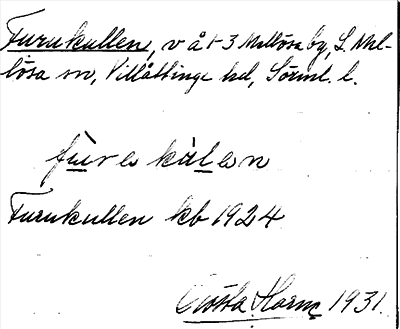 Furukullen, v å 1-3 Mellösa by, L. Mel-
lösa sn, Villåttinge hd, Sörml. l.
furekulen
Furukullen kb 1924
Gösta 1931.